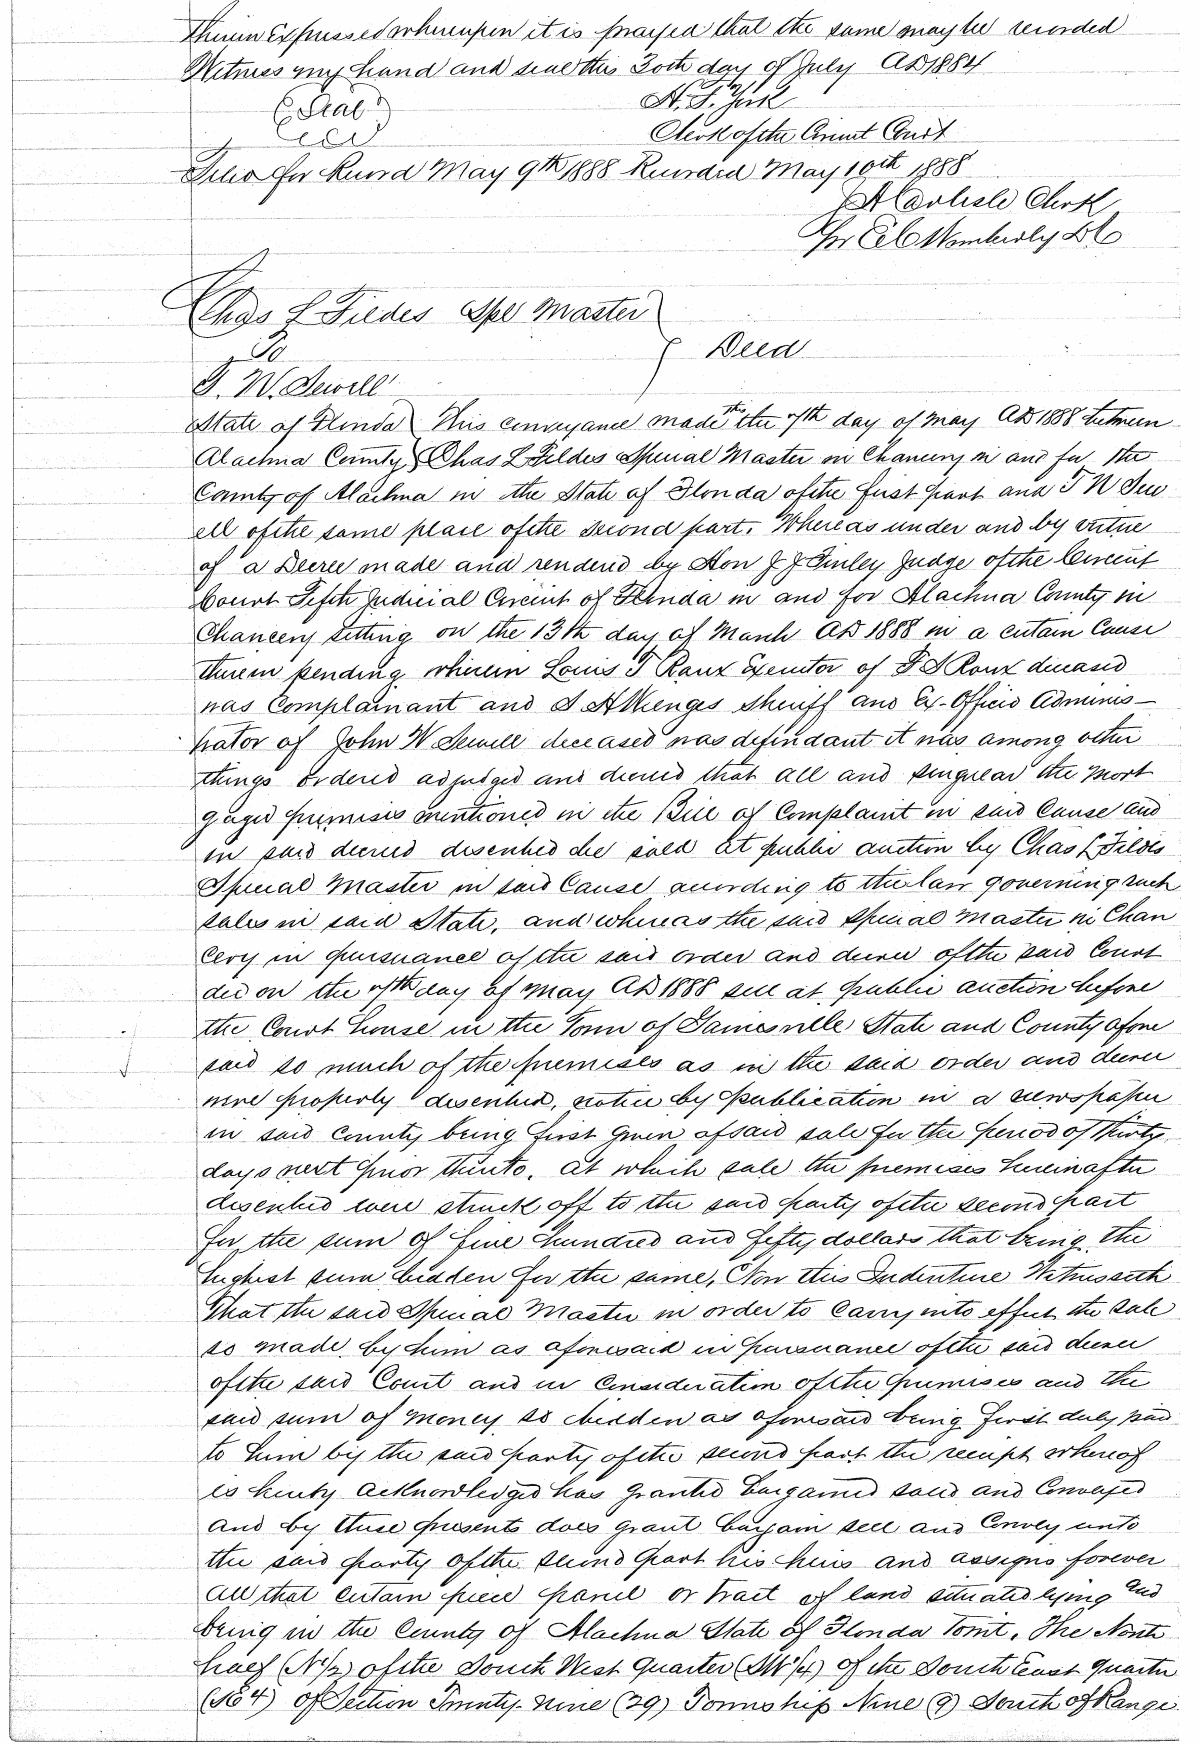 Therein Expressed whereupon it is prayed that the same may be recorded
Witness my hand and seal this 30th day of July AD 1884
(Seal) H. F. York
Clerk of the Circuit Court
Filed for Record May 9th 1888 Recorded May 10th 1888
Carlisle Clerk
Per Wimberly DC
Chas L Fildes Spe Master
To } Deed
T. W. Sewell
State of Florida This conveyance made this the 7th day of May AD 1888 between
Alachua County Chas L Fildes Special Master in Chancery in and for the
County of Alachua in the State of Florida of the first part and T W Sew
ell of the same place of the second part. Whereas under and by virtue
of a Decree made and rendered by Hon J J Finley Judge of the Circuit
Court Fifth Judicial Circuit of Florida in and for Alachua County in
Chancery sitting on the 13th day of March AD 1888 in a certain Cause
therein pending wherein Louis T Roux Executor of F S Roux deceased
was Complainant and S H Wienges Sheriff and Ex-Officio Adminis-
trator of John W Sewell deceased was defendant it was among other
things ordered adjudged and decreed that all and singular the Mort
gaged premises mentioned in the Bill of Complaint in said Cause and
in said decreed described be sold at public auction by Chas L Fildes
Special Master in said Cause according to the law governing such
sales in said State, and whereas the said Special Master in Chan
cery in pursuance of the said order and decree of the said Court
did on the 7th day of May AD 1888 sell at public auction before
the Court house in the Town of Gainesville State and County afore
said so much of the premises as in the said order and decree
were properly described, notice by publication in a newspaper
in said County being first given of said sale for the period of thirty
days next prior thereto, at which sale the premises hereinafter
described were struck off to the said party of the second part
for the sum of five hundred and fifty dollars that being the
highest sum bidden for the same, Now this Indenture Witnesseth
That the said Special Master in order to carry into effect the sale
so made by him as aforesaid in pursuance of the said decree
of the said Court and in consideration of the premises and the
said sum of money so bidden as aforesaid being first duly paid
to him by the said party of the second part the receipt whereof
is hereby acknowledged has granted bargained sold and conveyed
and by these presents does grant bargain sell and convey unto
the said party of the second part his heirs and assigns forever
all that certain piece parcel or tract of land situated lying and
being in the County of Alachua State of Florida towit. The North
half (N½) of the South West Quarter (SW¼) of the South East quarter
(SE 4) of Section Twenty-nine (29) Township Nine (9) South of Range